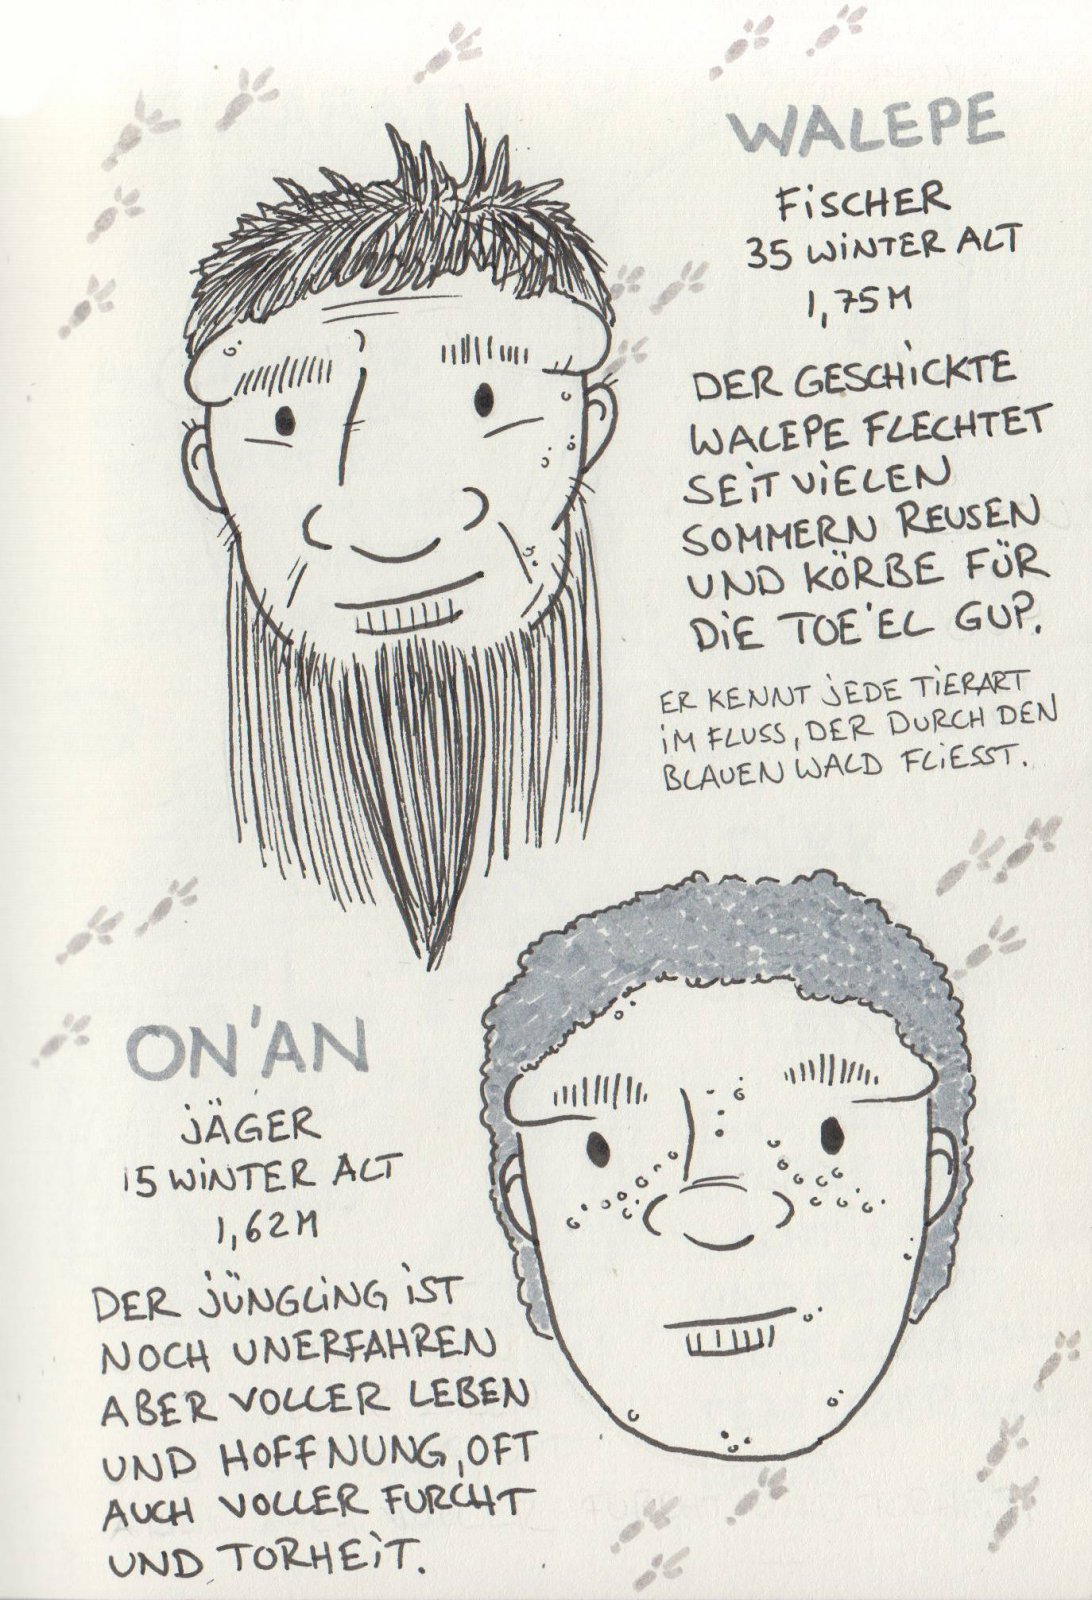 WALEPE
FiSCHER
35 WiNTER ALT
1,75M
DER GESCHiCKTE
WALEPE FLECHTET
SEiT ViELEN
SOMMERN REUSEN
UND KÖRBE FÜR
DiE TOE'EL GUP.
ER KENNT JEDE TiERART
iM FLUSS, DER DURCH DEN
BLAUEN WALD FLiESST.
ON'AN
JÄGER
15 WiNTER ALT
1,62M
DER JÜNGLiNG iST
NOCH UNERFAHREN
ABER VOLLER LEBEN
UND HOFFNUNG, OFT
AUCH VOLLER FURCHT
UND TORHEiT.